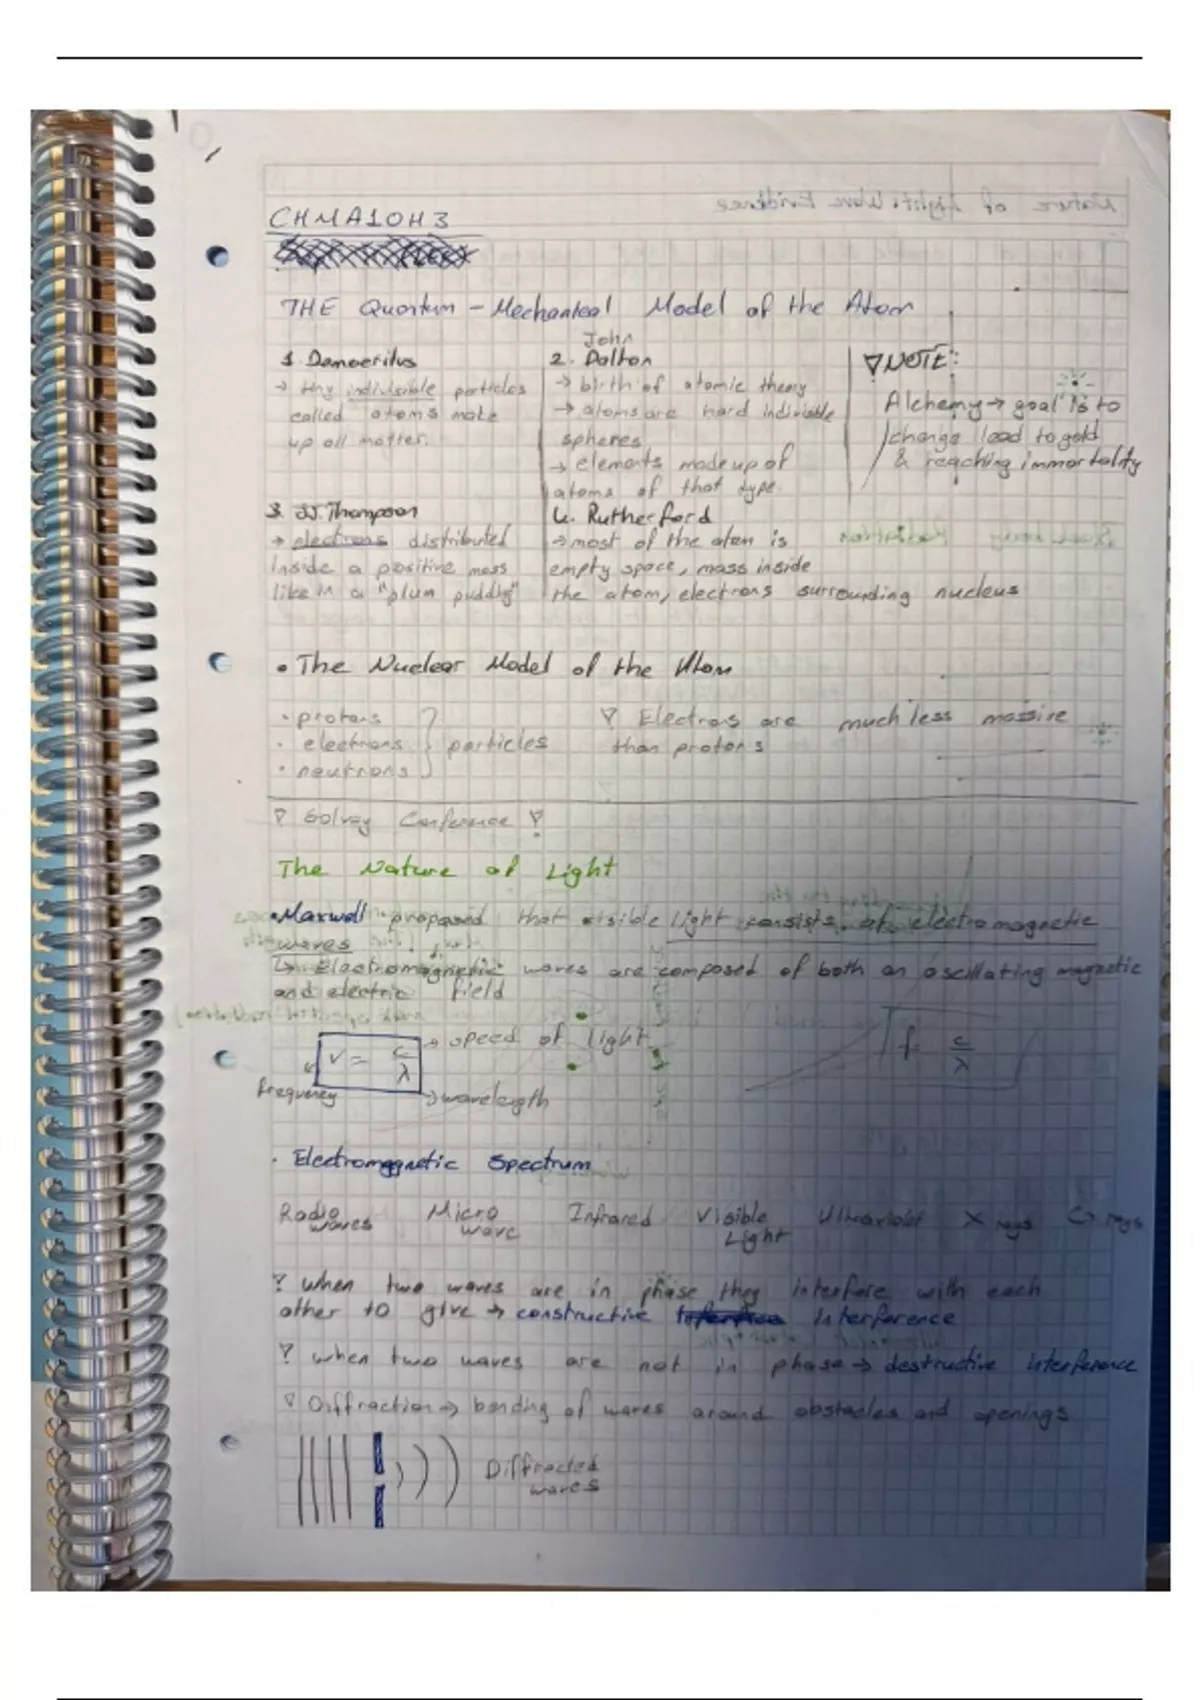 CHMA10H3
THE Quantum - Mechanical Model of the Atom
1. Democritus
→ tiny indivisible particles
called atoms make
up all matter.
John
2. Dalton
→ birth of atomic theory
→ atoms are hard indivisible
spheres
→ elements made up of
atoms of that type
NOTE:
Alchemy → goal is to
change lead to gold
& reaching immortality
3. JJ. Thompson
→ electrons distributed
inside a positive mass
like in a "plum pudding"
4. Rutherford
→ most of the atom is
empty space, mass inside
the atom, electrons surrounding nucleus
• The Nuclear Model of the Atom
• protons
• electrons
• neutrons
particles
Electrons are much less massive
than protons
Solvay Conference
The Nature of Light
• Maxwell proposed that visible light consists of electromagnetic
waves
↳ Electromagnetic waves are composed of both an oscillating magnetic
and electric field
v = c/λ
→ speed of light
frequency
→ wavelength
f = c/λ
• Electromagnetic Spectrum
Radio waves Micro wave Infrared Visible Light Ultraviolet X rays G rays
? when two waves are in phase they interfere with each
other to give → constructive Interference
? when two waves are not in phase → destructive interference
Diffraction → bending of waves around obstacles and openings
Diffracted
waves